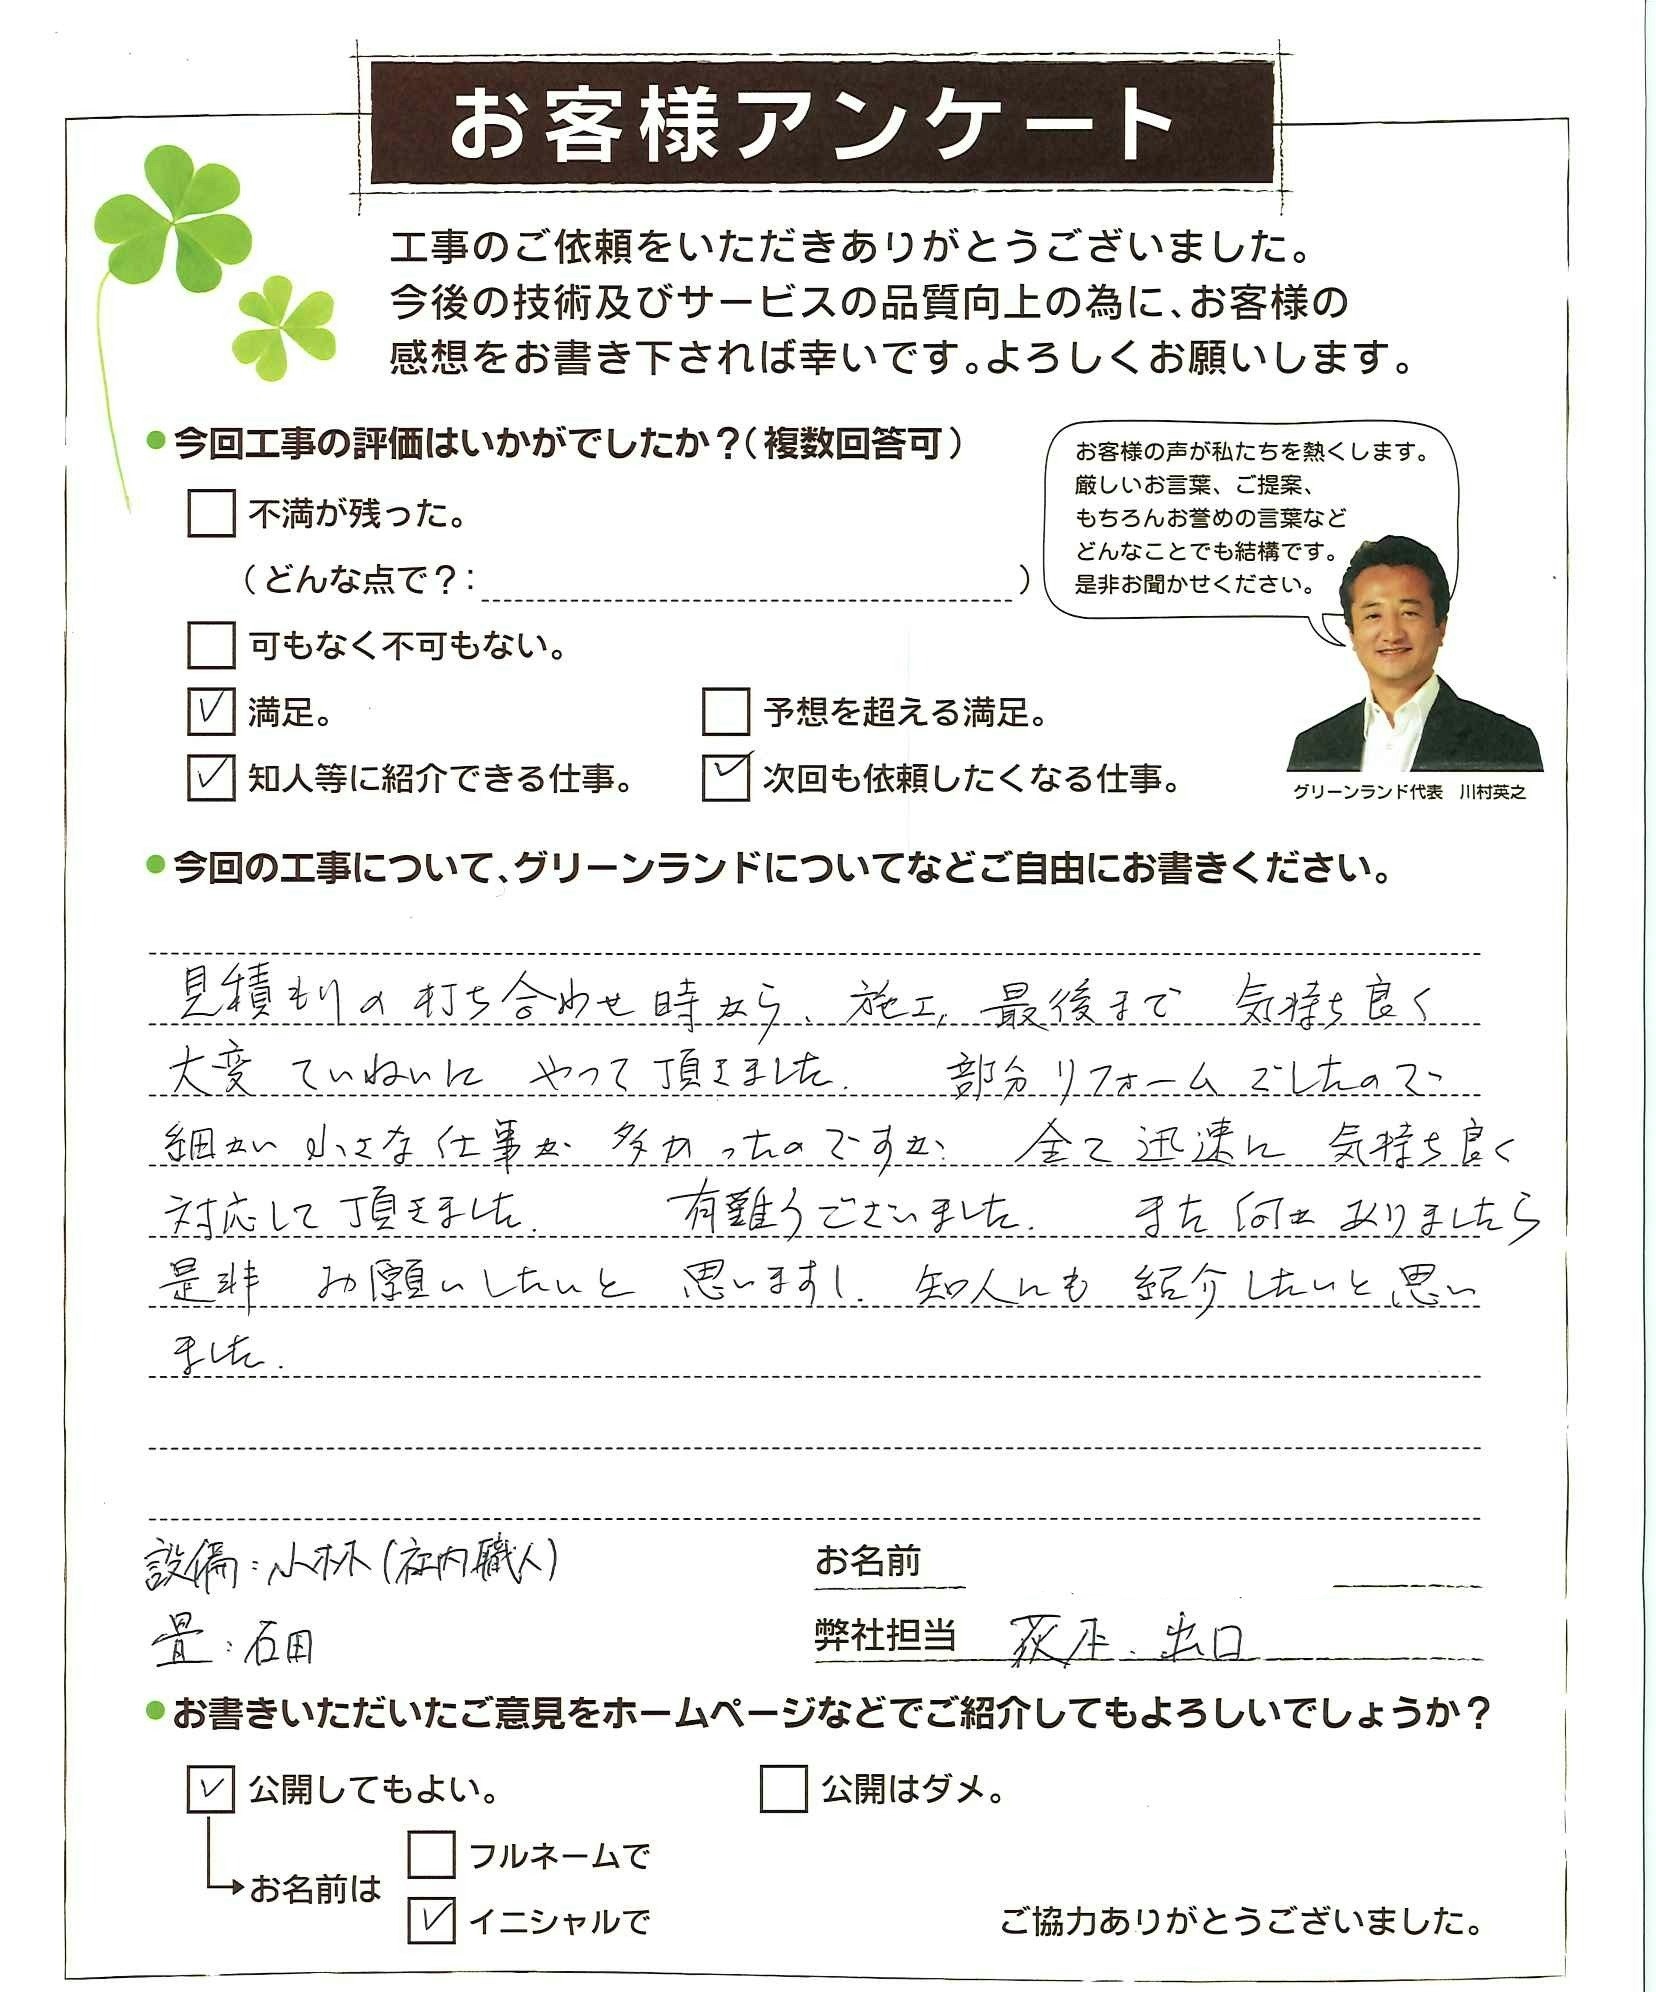 お客様アンケート
工事のご依頼をいただきありがとうございました。
今後の技術及びサービスの品質向上の為に、お客様の
感想をお書き下されば幸いです。よろしくお願いします。
●今回工事の評価はいかがでしたか？（複数回答可）
不満が残った。
（どんな点で？：　）
可もなく不可もない。
満足。
予想を超える満足。
知人等に紹介できる仕事。
次回も依頼したくなる仕事。
お客様の声が私たちを熱くします。
厳しいお言葉、ご提案、
もちろんお誉めの言葉など
どんなことでも結構です。
是非お聞かせください。
グリーンランド代表　川村英之
●今回の工事について、グリーンランドについてなどご自由にお書きください。
見積もりの打ち合わせ時から、施工、最後まで 気持ち良く
大変 ていねいに やって頂きました. 部分リフォームでしたので
細かい 小さな仕事が 多かったのですが 全て 迅速に 気持ち良く
対応して頂きました. 有難うございました. また何かありましたら
是非 お願いしたいと 思いますし. 知人にも 紹介したいと思い
ました.
設備：小林（社内職人）
畳：石田
お名前
弊社担当　荻原．出口
●お書きいただいたご意見をホームページなどでご紹介してもよろしいでしょうか？
公開してもよい。
公開はダメ。
お名前は
フルネームで
イニシャルで
ご協力ありがとうございました。